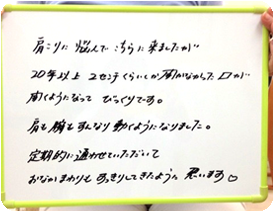 肩こりに悩んでこちらに来ましたが
20年以上 2センチくらいしか開かなかった口が
開くようになって びっくりです。
肩も腕もすんなり動くようになりました。
定期的に通わせていただいて
おなかまわりも すっきりしてきたように 思います♡